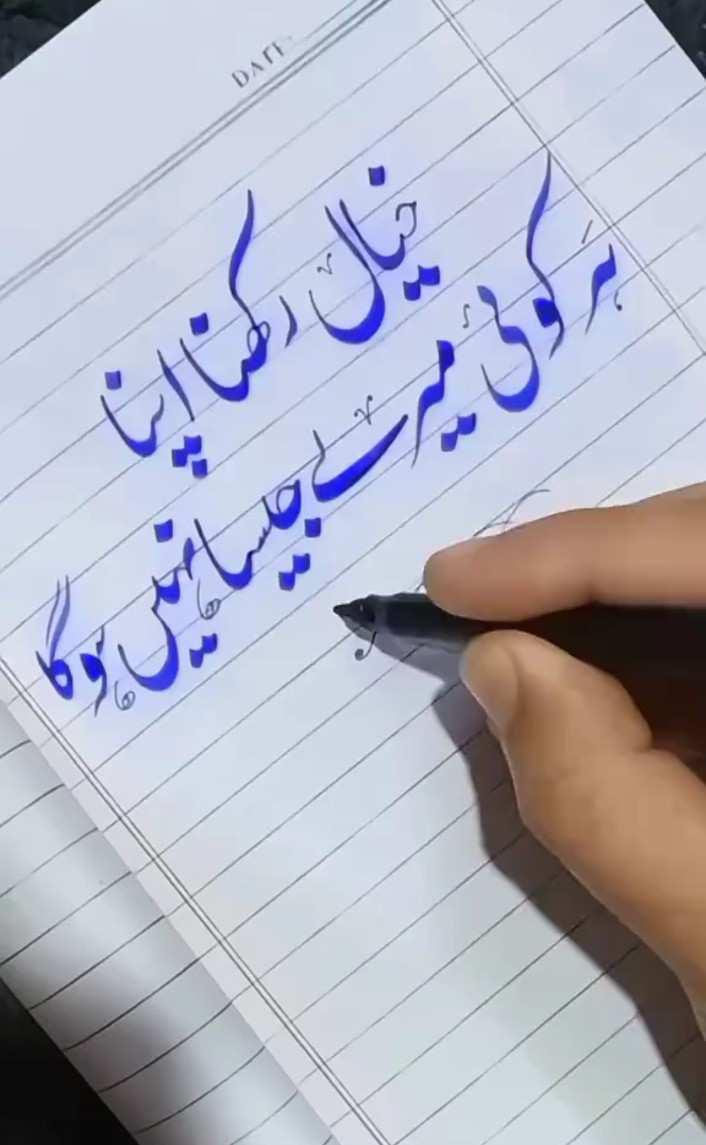 DATE:
خیال رکھنا اپنا
ہر کوئی میرے جیسا نہیں ہوگا